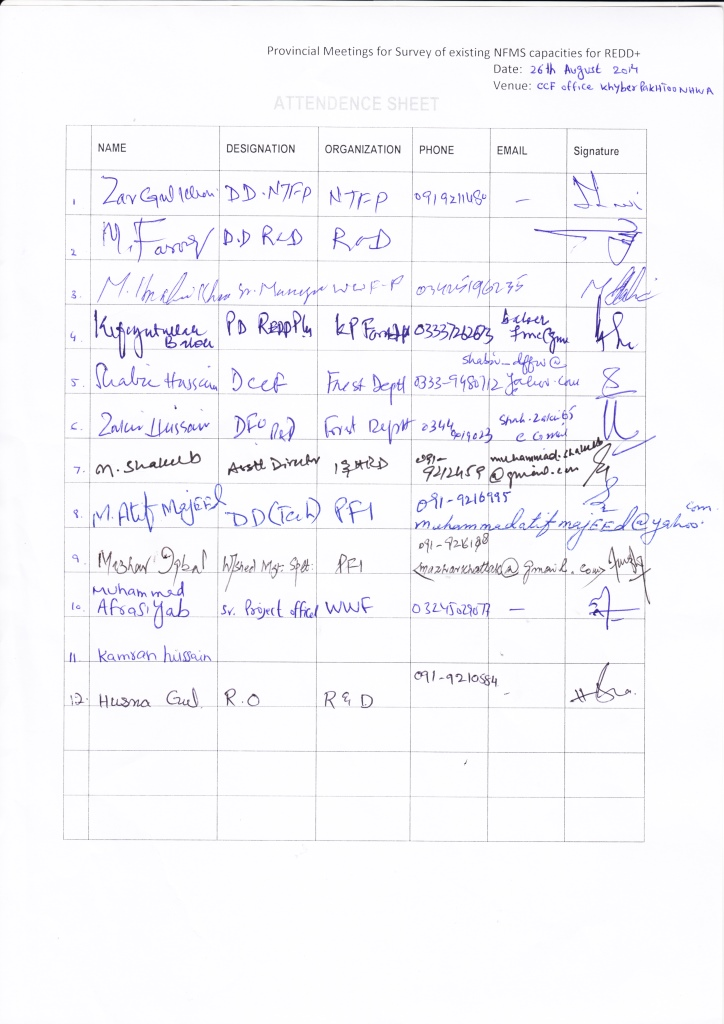 Provincial Meetings for Survey of existing NFMS capacities for REDD+
Date: 26th August 2014
Venue: CCF office Khyber PAKHTOONHWA
ATTENDENCE SHEET
NAME DESIGNATION ORGANIZATION PHONE EMAIL Signature
1. Zar Gul Khan DD-NTFP NTFP 0919211480 —
2 M. Farooq D.D R&D R&D
3. M. Khan Sr. Manager WWF-P 03425196235
4. Kifayatullah Baloch PD KP 0333726263
5. Shabir Hussain DCCF Forest Deptt 0333-9480712
6. Zakir Hussain DFO R&D Forest Deptt 0344 9019023
7. M. Shakeeb Asstt Director 091-9212459 muhammad.shakeeb @gmail.com
8. M. Atif MajEED DD(Tech) PFI 091-9216995 muhammadatifmajEED@yahoo.com
9. Mazhar Iqbal W/Shed Mgt. Splt. PFI mazharkhattak@gmail.com
10. Muhammad Afrasiyab Sr. Project officer WWF 03245029077 —
11 Kamran hussain
12. Husna Gul R.O R&D 091-9210584 -